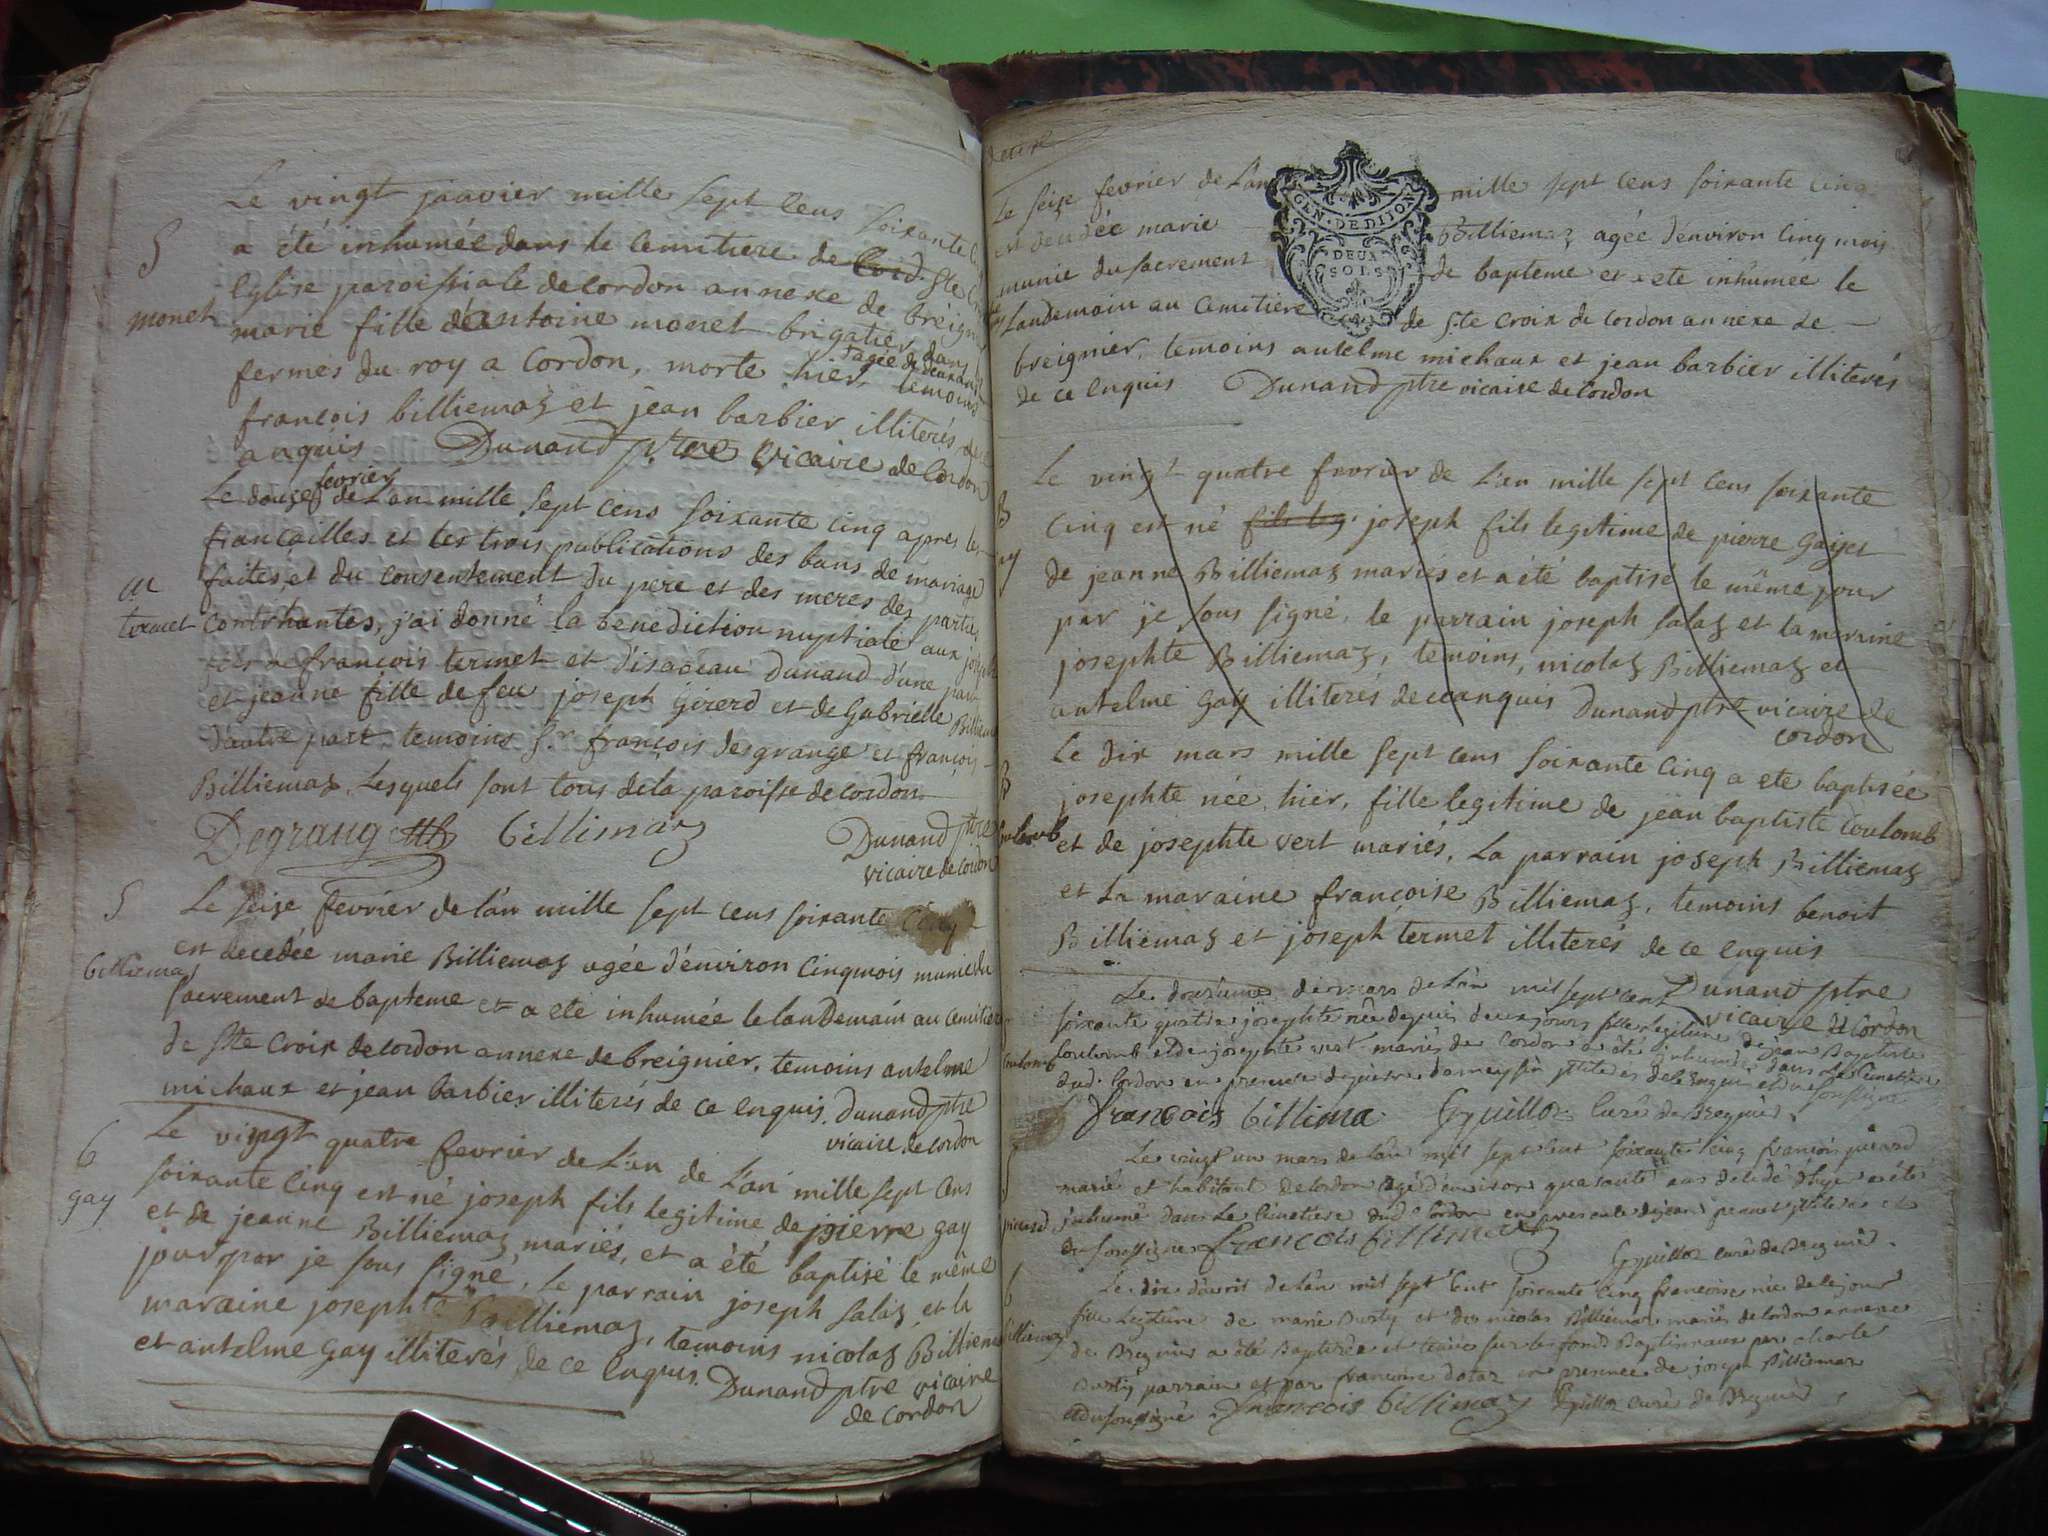 Le vingt janvier mille sept cens soixante
a été inhumée dans le cemitiere de Cord. Ste
Eglise paroissiale de cordon annexe de breignie
marie fille déantoine monet brigatier dans
fermes du roy a Cordon, morte hier, agée de deux ans temoins
françois billiemaz et jean barbier illiterés de
anquis Dunand ptre vicaire de Cordon
S
monet
Le douze fevrier de L'an mille sept cens soixante cinq apres les
fiancailles et les trois publications des bans de mariage
faites, et du consentement du pere et des meres des parties
contrhantes, j'ai donné la benediction nuptiale aux joseph
fils de françois termet et d'isabeau Dunand d'une part
et jeanne fille de feu joseph Girerd et de Gabrielle Billiema
dautre part, temoins Sr. françois degrange et françois
Billiemaz, Lesquels sont tous dela paroisse de cordon
Degrange billimaz Dunand ptre
vicaire de cordon
M
termet
Le seize fevrier de lan mille sept cens soixante cinq
est decedée marie Billiemaz agée d'environ cinq mois munie du
sacrement de bapteme et a ete inhumée le landemain au cemitiere
de Ste Croix de cordon annexe de breignier. temoins antelme
michaux et jean barbier illiterés de ce enquis. Dunand ptre
vicaire de cordon
S
billiemaz
Le vingt quatre fevrier de L'an de L'an mille sept cens
soixante cinq est né joseph fils legitime de pierre gay
et de jeanne Billiemaz mariés, et a été baptisé le même
jour par je sous signé, le parrain joseph salaz et la
maraine josephte Billiemaz, temoins nicolas Billiema
et antelme gay illiterés de ce enquis. Dunand ptre vicaire
de cordon
6
gay
Le seize fevrier de L'an mille sept cens soixante cinq
est decedée marie Billiemaz agée denviron cinq mois
munie du sacrement de bapteme et a ete inhumée le
landemain au cemetiere de Ste croix de cordon annexe de
breignier, temoins antelme michaux et jean barbier illiterés
de ce enquis Dunand ptre vicaire de cordon
GEN. DE DIJON
DEUX
SOLS
Le vingt quatre fevrier de L'an mille sept cens soixante
cinq est né fils leg. joseph fils legitime de pierre Gay et
de jeanne Billiemaz mariés et a été baptisé le même jour
par je sous signé, le parrain joseph salaz et la maraine
josephte Billiemaz, temoins, nicolas Billiemaz et
antelme Gay illiterés de ce anquis Dunand ptre vicaire de
cordon
B
Le dix mars mille sept cens soixante cinq a ete baptisée
josephte née hier, fille legitime de jean baptiste Coulomb
et de josephte vert mariés. La parrain joseph Billiemaz
et La maraine françoise Billiemaz, temoins benoit
Billiemaz et joseph termet illiterés de ce enquis
Dunand ptre
vicaire de Cordon
B
Coulomb
Le douzieme de mars de lan mil sept cent
soixante quatre josephte née depuis deux jours fille legitime de jean Baptiste
Coulomb et de josephte vert mariés de Cordon a été inhumée dans le Cimetiere
dud. Cordon en presence de pierre
françois billima Guilloz Curé de Bregnie
Coulomb
Le vingt un mars de lan mil sept cent soixante cinq françois
marié et habitant de Cordon agé denviron quarante ans decedé dhyer a été
inhumé dans Le Cimetiere dud. Cordon en presence de jean
du soussigné françois billimaz
Guilloz curé de Bregnié
Le dix davril de lan mil sept Cent soixante cinq francoise née de ce jour
fille Legitime de marie et de nicolas Billiemaz mariés de Cordon annexe
de Bregnié a été Baptisée et tenue sur les fonds Baptismaux par charle
parrain et par francoise en presence de joseph Billiemaz
et du soussigné françois billimaz Guilloz curé de Bregnié
billiemaz